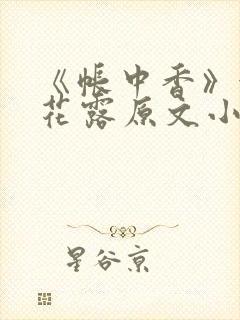 《帐中香》
花露原文小
星谷京